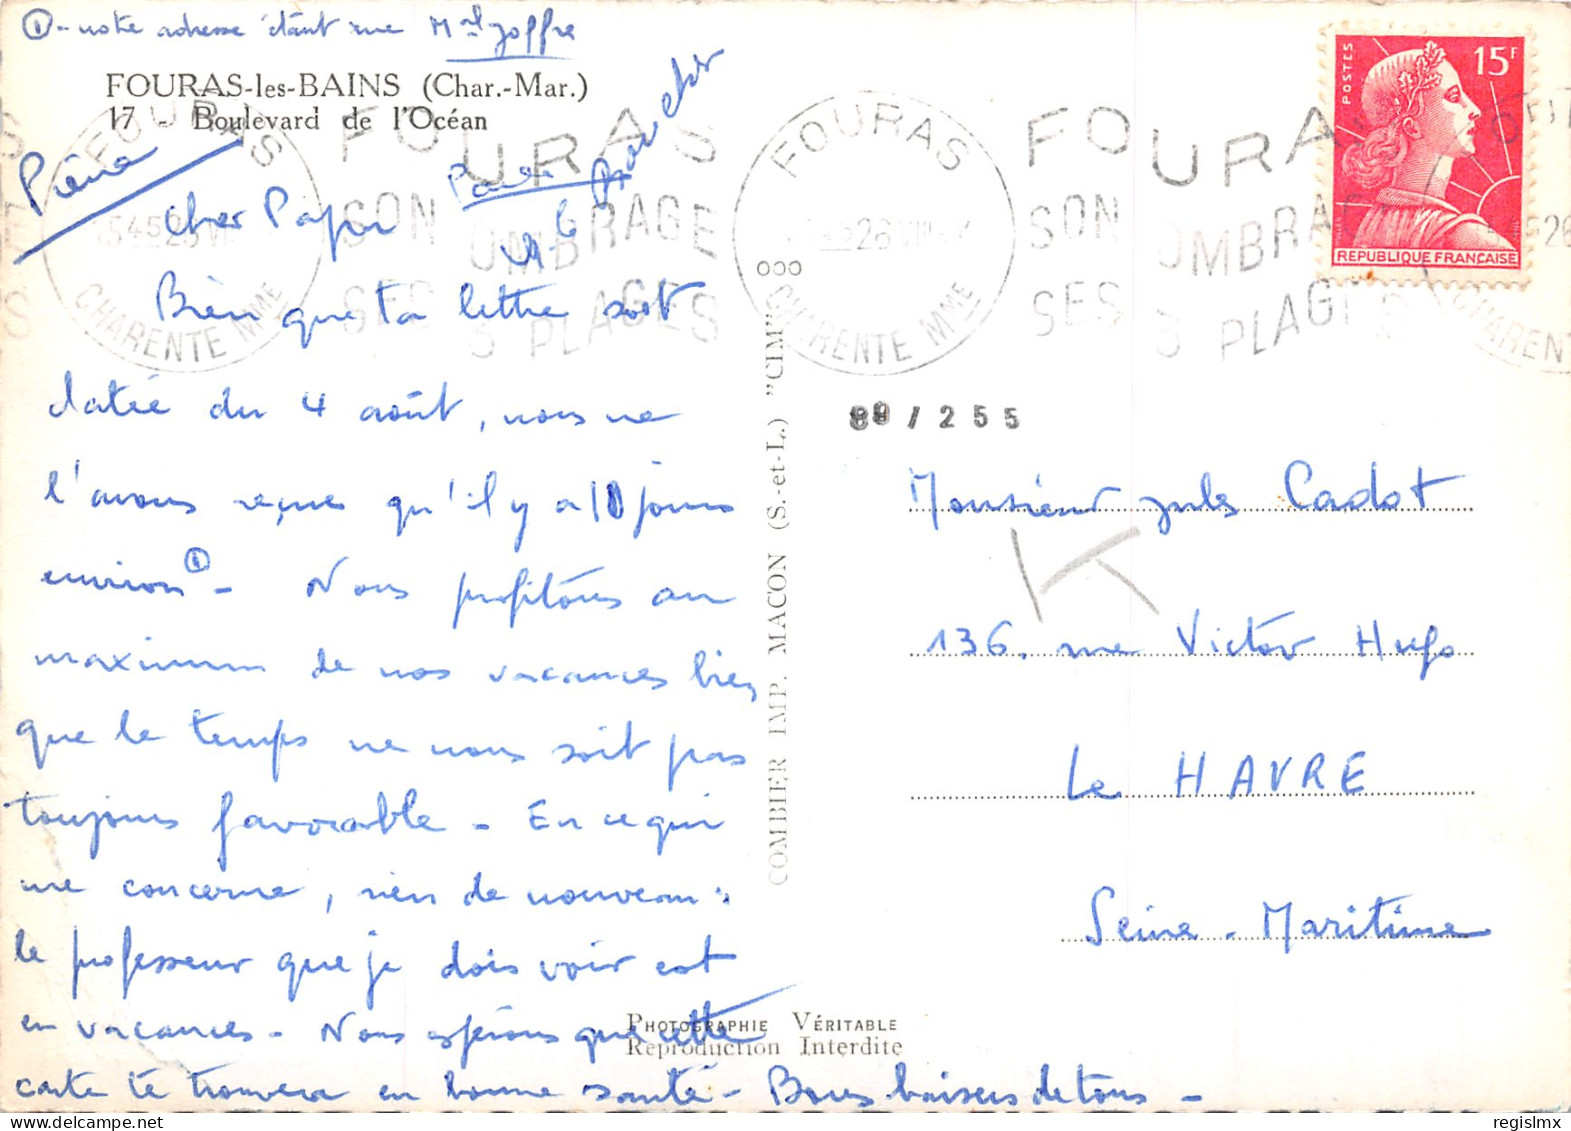 ① - notre adresse étant rue Mal Joffre
FOURAS-les-BAINS (Char.-Mar.)
17 - Boulevard de l'Océan
Cher Papi
Bien que ta lettre soit
datée du 4 août, nous ne
l'avons reçue qu'il y a 10 jours
environ ① - Nous profitons au
maximum de nos vacances bien
que le temps ne nous soit pas
toujours favorable - En ce qui
me concerne, rien de nouveau :
le professeur que je dois voir est
en vacances - Nous espérons que cette
carte te trouvera en bonne santé - Bons baisers de tous -
PHOTOGRAPHIE VÉRITABLE
Reproduction Interdite
COMBIER IMP. MACON (S.-et-L.) "CIM"
FOURAS
CHARENTE MME
FOURAS
SON OMBRAGE
SES 3 PLAGES
FOURAS
CHARENTE MME
FOURAS
SON OMBRAGE
SES 3 PLAGES
POSTES
15F
REPUBLIQUE FRANÇAISE
88 / 255
Monsieur Jules Cadot
K
136, rue Victor Hugo
Le HAVRE
Seine-Maritime
regislmx